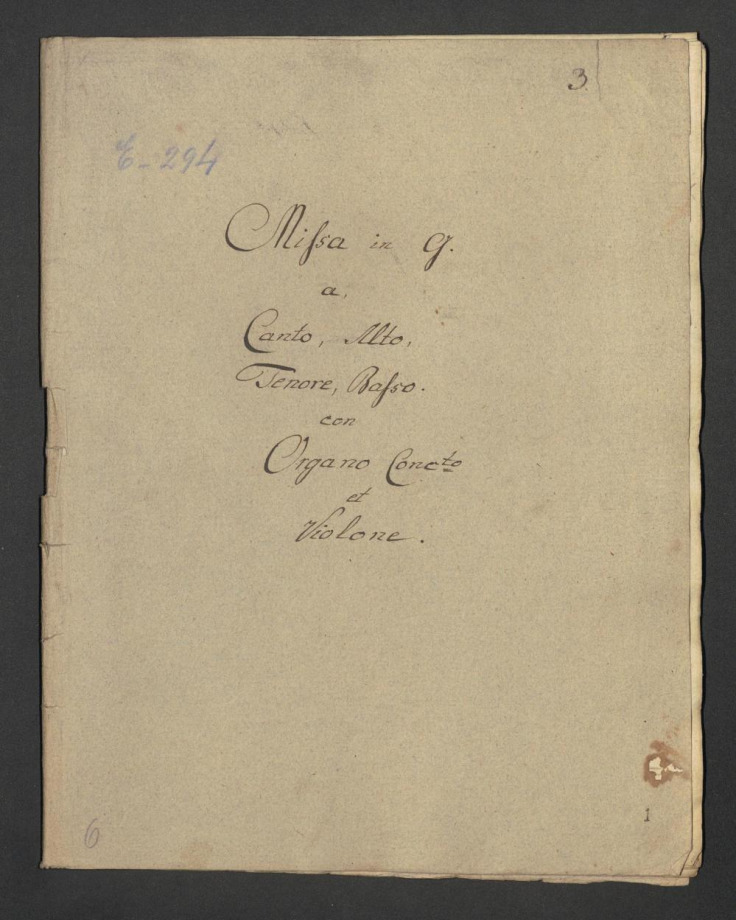 3
E-294
Miſsa in G.
a,
Canto, Alto,
Tenore, Baſso.
con
Organo Conc<sup>to</sup>
et
Violone.
1
6